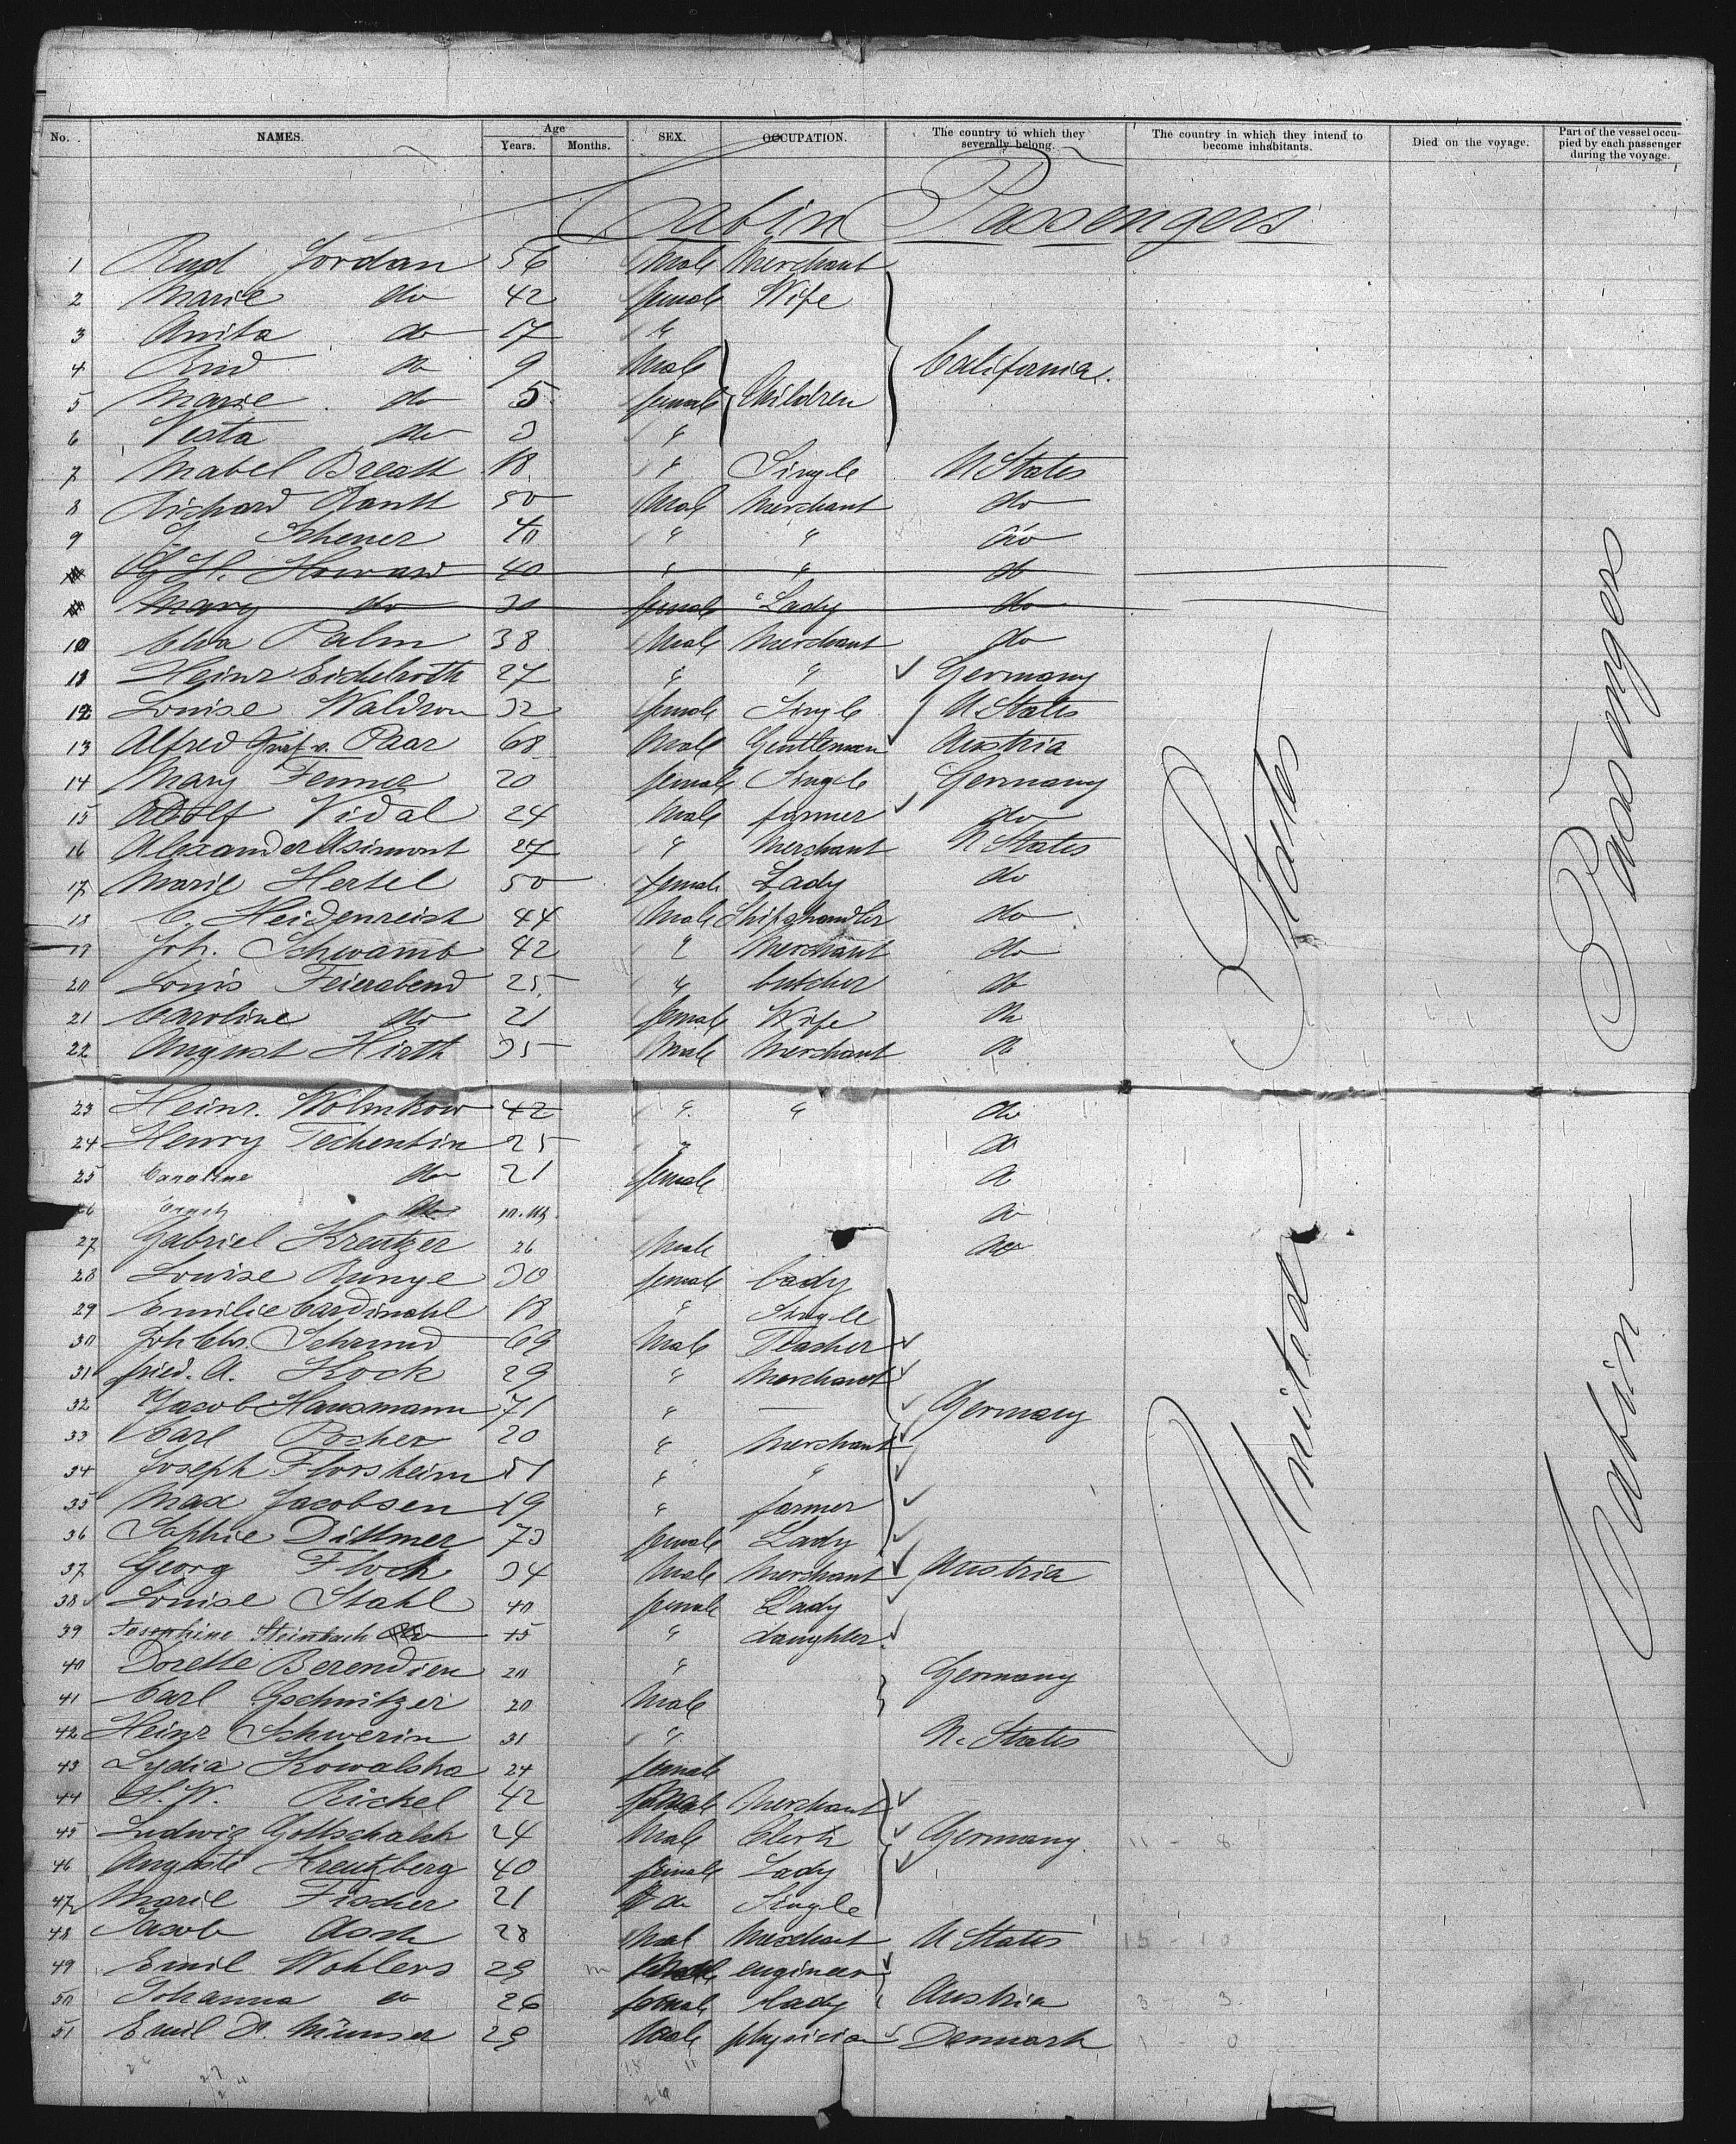 No. NAMES. Age Years. Months. SEX. OCCUPATION. The country to which they severally belong. The country in which they intend to become inhabitants. Died on the voyage. Part of the vessel occupied by each passenger during the voyage.
Cabin Passengers
1 Rud Jordan 56 Male Merchant
2 Marie do 42 female Wife
3 Anita do 17 "
4 Rud do 9 Male California.
5 Marie do 5 female Children
6 Vesta do 3 "
7 Mabel 18 " Single U States
8 Richard 50 Male Merchant do
9 J Schener 40 " " do
H. Howard 40 " " do
Mary do 30 female Lady do
10 Palm 38 Male Merchant do
11 Heinr Eichelroth 27 " " Germany
12 Louise Waldron 32 female Single U States
13 Alfred Graf v. Paar 68 Male Gentleman Austria
14 Mary 20 female Single Germany
15 Adolf Vidal 24 Male farmer do
16 Alexander Asimont 27 " Merchant U States
17 Marie Hertel 50 female Lady do
18 C. Heidenreich 44 Male do
19 Joh. Schwamb 42 " Merchant do
20 Louis Feierabend 25 " butcher do
21 Caroline do 21 female Wife do
22 August Hirth 35 Male Merchant do
23 Heinr. Wölmkow 42 " " do
24 Henry Techentin 25 " do
25 Caroline do 21 female do
26 do do
27 Gabriel Kreutzer 26 Male do
28 Louise Runge 30 female Lady
29 Emilie Cardinahl 18 " Single
30 Joh Chr. Schrund 69 Male Teacher
31 fried. A. Kock 29 " Merchant
32 Jacob Hausmann 71 " — Germany
33 Carl Pocher 20 " Merchant
34 Joseph Florsheim 51 " "
35 Max Jacobsen 19 " farmer
36 Sophie Dittmer 73 female Lady
37 Georg Floch 34 Male Merchant Austria
38 Louise Stahl 40 female Lady
39 Josephine Steinbach do 15 " daughter
40 Dorette Berendien 20 " Germany
41 Carl Gschnitzer 20 Male
42 Heinr Schwerin 31 " U. States
43 Lydia Kowalska 24 female
44 H. W. Rickel 42 Male Merchant
45 Ludwig Gottschalk 24 Male Clerk Germany. 11 - 8
46 Auguste Kreutzberg 40 female Lady
47 Marie Fischer 21 do Single
48 Jacob Asch 28 Mal Merchant U States 15 - 10
49 Emil Wohlers 29 m engineer
50 Johanna do 26 female lady Austria 3 - 3
51 Emil 29 Male physician Denmark 1 - 0
United States
Cabin Passengers